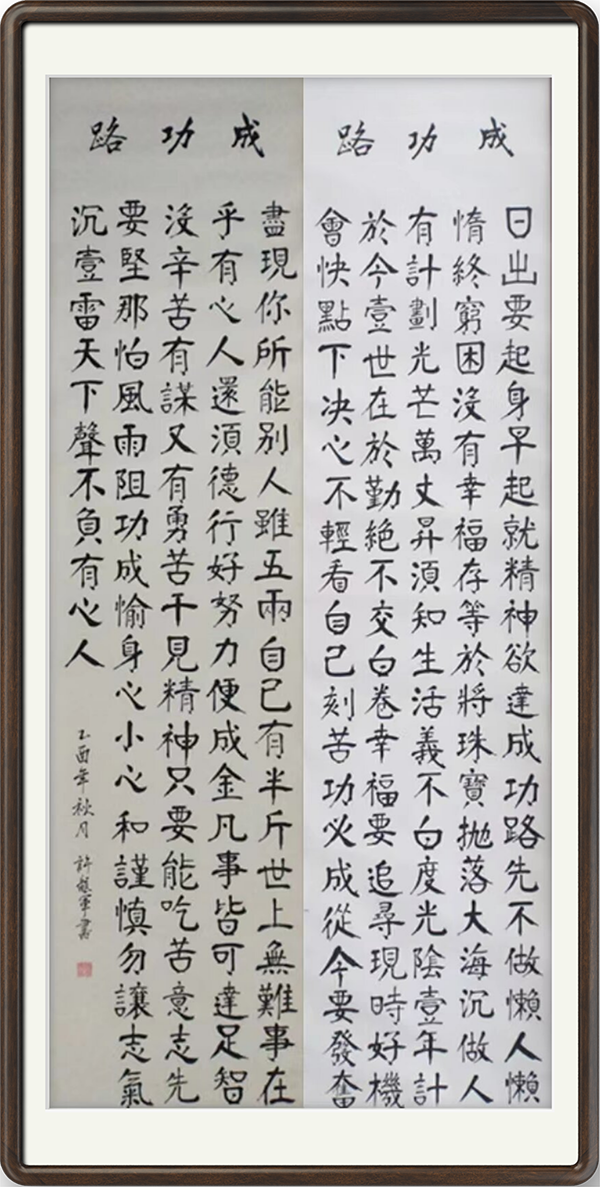 成功路
日出要起身早起就精神欲達成功路先不做懶人懶
惰終窮困沒有幸福存等於將珠寶拋落大海沉做人
有計劃光芒萬丈昇須知生活義不白度光陰壹年計
於今壹世在於勤絶不交白卷幸福要追尋現時好機
會快點下决心不輕看自己刻苦功必成從今要發奮
成功路
盡現你所能別人雖五兩自己有半斤世上無難事在
乎有心人還須德行好努力便成金凡事皆可達足智
沒辛苦有謀又有勇苦干見精神只要能吃苦意志先
要堅那怕風雨阻功成愉身心小心和謹慎勿讓志氣
沉壹雷天下聲不負有心人
乙酉年秋月 許軍書